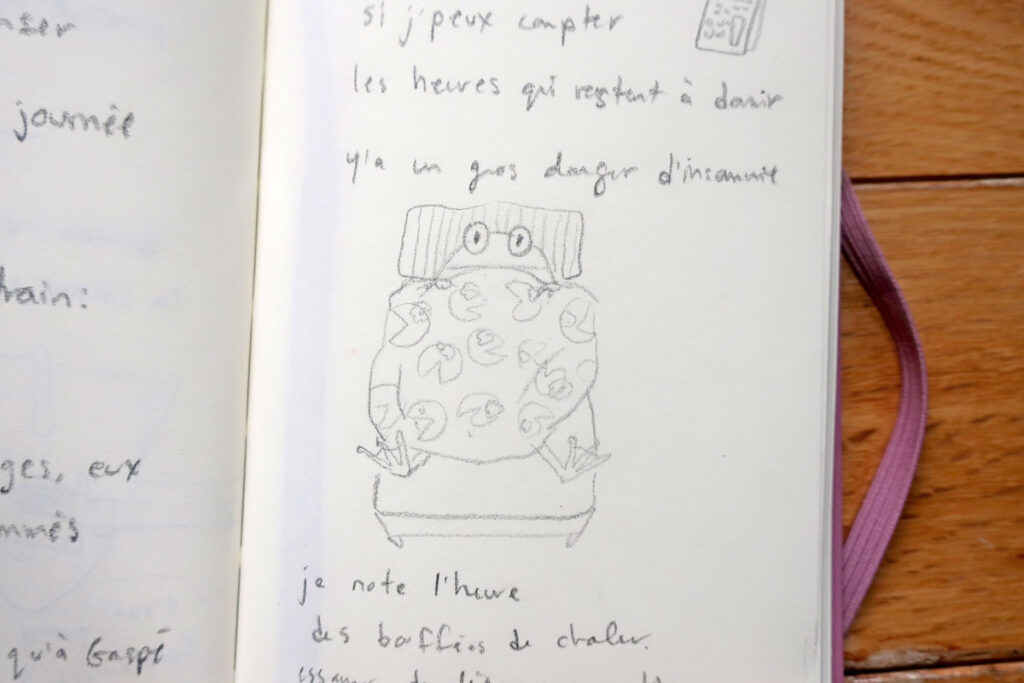 journée
train:
ges, eux
mmés
qu'à Gaspé
si j'peux compter
les heures qui restent à dormir
y'a un gros danger d'insomnie
je note l'heure
des bouffées de chaleur.